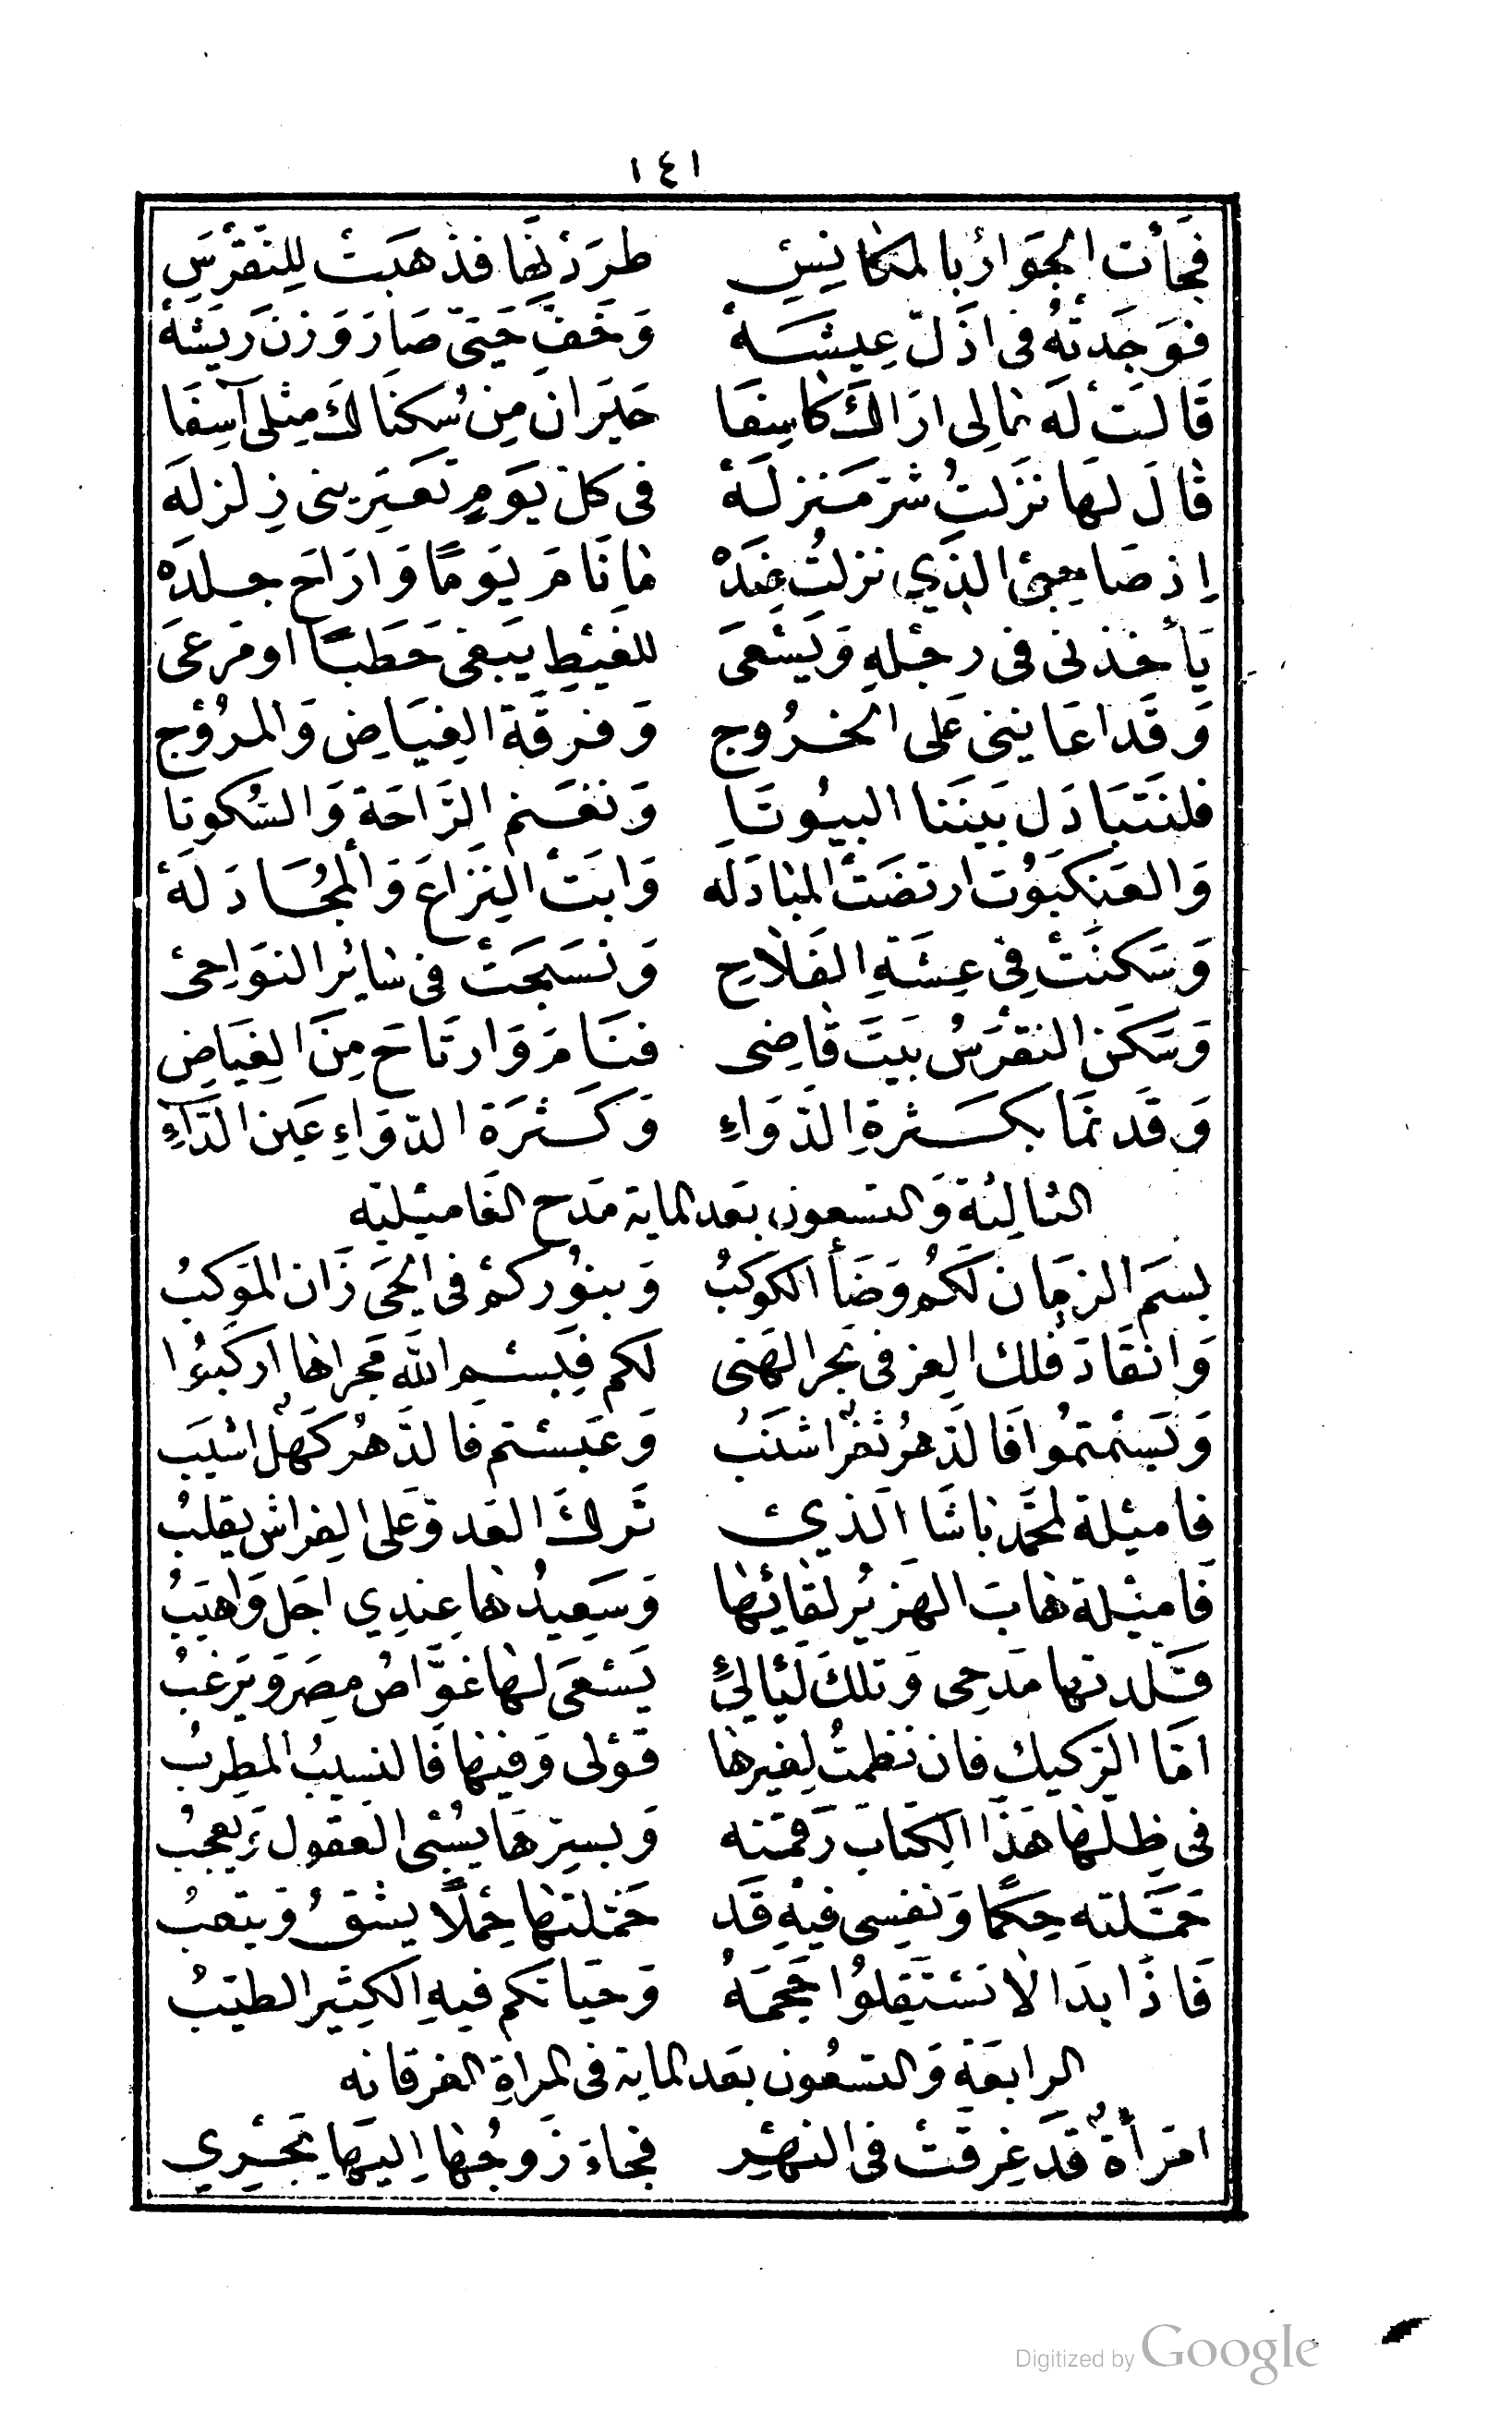 ١٤١
فَجَأَت الجَوَارُ بِالمَكَانِسِ طَرَدْنَهَا فَذهَبَتْ لِلنّقْرَسِ
فوَجَدَتْهُ فى اذَلّ عِيشَهْ وَخَفّ حَتىّ صَارَ وَزنَ ريَشَهْ
قَالَتْ لَه مَا لِى ارَاكَ كَاسِفَا حَيَرانَ مِن سُكنَاكَ مِثلى آسِفَا
قالَ لهَا نزَلتُ شرّمَنزلَهْ فى كلّ يَومٍ تعَتَرِينى زِلزلَه
إذ صَاحِبىْ الذي نزلتُ عِندَهْ مانَامَ يَومًا وَارَاحَ جلدَه
يَأخذنى فى رجْلهِ وَيَسْعَى للغَيْطِ يَبغى حَطَبًا اومَرعىَ
وَقَداعَايننى عَلى الخرُوج وَفرقَة الغِيَاضِ وَالمرُوْج
فلنَتَبَادَل بَينَنا البيُوتَا وَنغنَم الرَّاحَة وَالسُّكوتا
وَالعَنكبَوُت ارتضَتْ المبَادَلَه وَابَتْ النِزَاعَ وَالمجُادَلَهْ
وَسَكنَتْ فِى عِشَةِ الفَلاحِ وَنسَجَتْ فى سَايُر النوَاحِىْ
وَسَكَن النقرَسُ بَيتَ قاضِى فنَامَ وَارتَاحَ مِنَ الغِيَاضِ
وَقَدنمَا بكَثرةِ الدّوَاءِ وَكَثرَة الدّوَاءِ عَين الدَّاءِ
الثالِثة وَالتسعون بعَد الماية مَدح الفَاميْليّه
بسَم الزمَان لكُم وَضَأ الكوكبُ وَبنوُركمْ فى الحَى زَان المَوكبُ
وَانقادَ فلك العز فى بَحر الهَنى لكم فبِسْم الله مجَراها اركَبُوا
وَبَسَمْتمُوا فَالدّهرُ ثغرٌ اشنَبُ وَعَبستم فَالدّهرُ كَهلٌ اشيَب
فاميْلة لمحمّد باشَا الذيْ تَركَ العَدوّ عَلى الفراش يقلبُ
فَاميْلة هابَ الهَزيُر لقائهَا وَسَعيدُها عِندِي اجَل وَاهيَبُ
قَلدتها مَدحِى وَتلكَ لَئَالِئٌ يَسْعَى لهَا غوَّاصُ مِصرَ وَيَرغبُ
امّا الرّكيك فان نظمتُ لِغَيرهَا قوْلى وَفيهَا فَالنسَيبُ المطربُ
فى ظِلهَا هَذا الكِتابَ رَقمتَه وَبسِرّهَا يُسْبى العَقول وَيعجبُ
حَمّلته حِكمًا وَنفسِى فيهِ قَد حَمّلتهَا حِمْلاً يشقُ وَيتعبُ
فَاذَا بدَا لا تسْتَقِلوُا حَجمَهُ وَحَياتكم فيهِ الكِثير الطيّبُ
الرابعَة وَالتسعُون بعَد الماية فى المرأة الغرقانه
امَرأةٌ قَدغرقتْ فى النهْرِ فجَاءَ زَوجُهَا إليهَا يَجْري
Digitized by Google